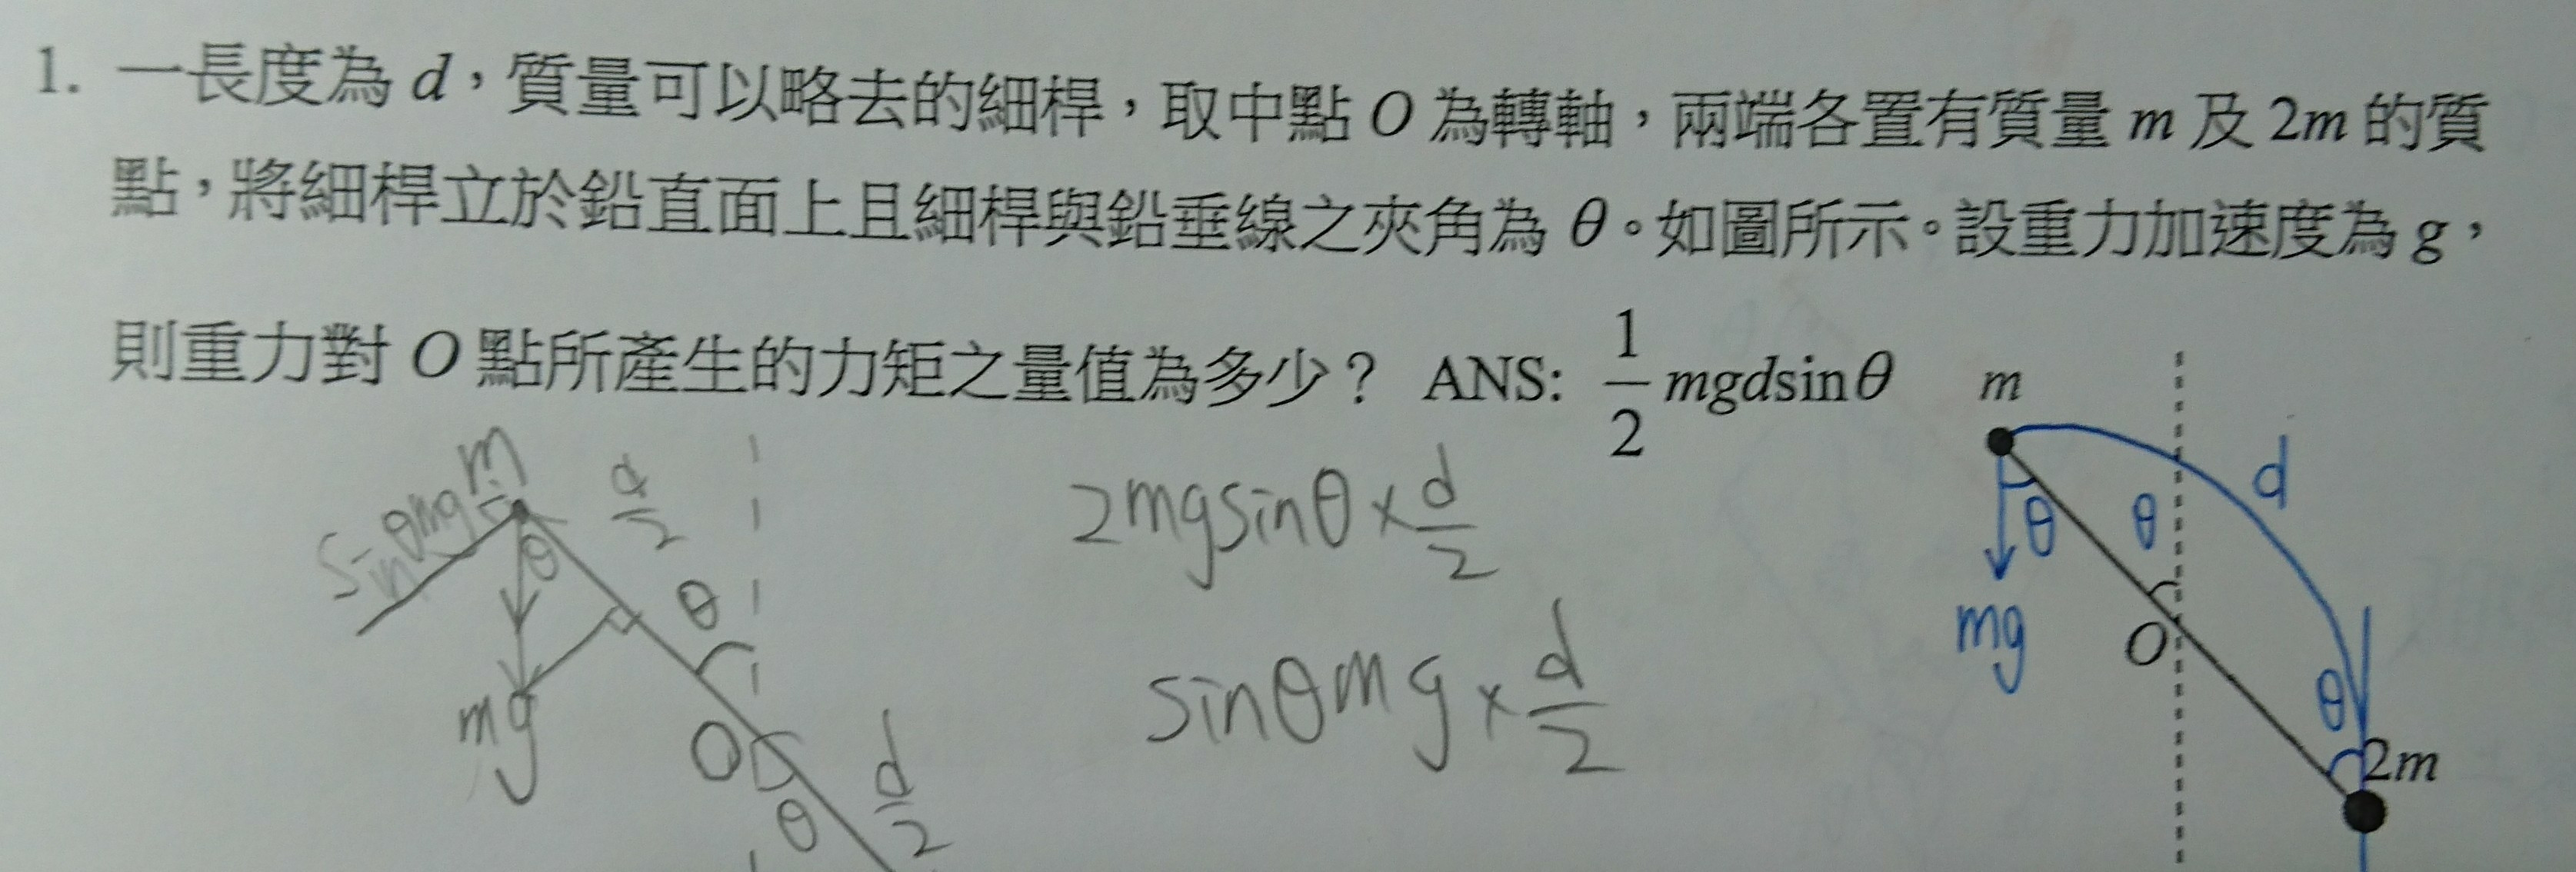 1. 一長度為 d，質量可以略去的細桿，取中點 O 為轉軸，兩端各置有質量 m 及 2m 的質
點，將細桿立於鉛直面上且細桿與鉛垂線之夾角為 θ。如圖所示。設重力加速度為 g，
則重力對 O 點所產生的力矩之量值為多少？ ANS: 1/2 mgdsinθ
m
d
θ
θ
mg
O
θ
2m
m
sinθmg
d/2
θ
θ
mg
O
θ
d/2
2mgsinθ × d/2
sinθmg × d/2